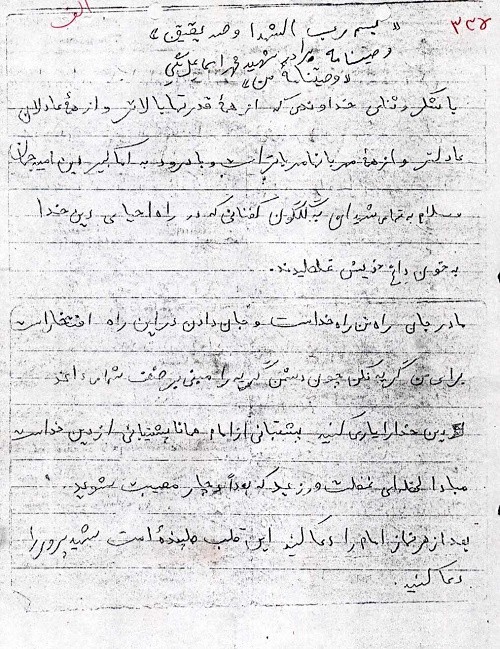 الف
۳۳۸
«بسم رب الشهدا و صدیقین»
وصیتنامه برادر شهید محمد اسماعیل
«وصیتنامه من»
با تشکر و ثنای خداوندی که از همهٔ قدرتها بالاتر و از همهٔ عادلان
عادلتر و از همهٔ مهربانها مهربانتر است و با درود به امام کبیر این امید جهان
و سلام به تمامی شهدای گلگون کفنانی که در راه احیای دین خدا
به خون داغ خویش غلطیدند.
مادر جان راه من راه خداست و جان دادن در این راه افتخار است
برای من گریه نکن چون دشمن گریه را مبنی بر ضعف شما می داند
دین خدا را یاری کنید پشتیبانی از امام همانا پشتیبانی از دین خداست
مبادا لحظه ای غفلت ورزید که بعداً دچار مصیبت بشوید.
بعد از هر نماز امام را دعا کنید این قلب طپنده امت شهید پرور را
دعا کنید.